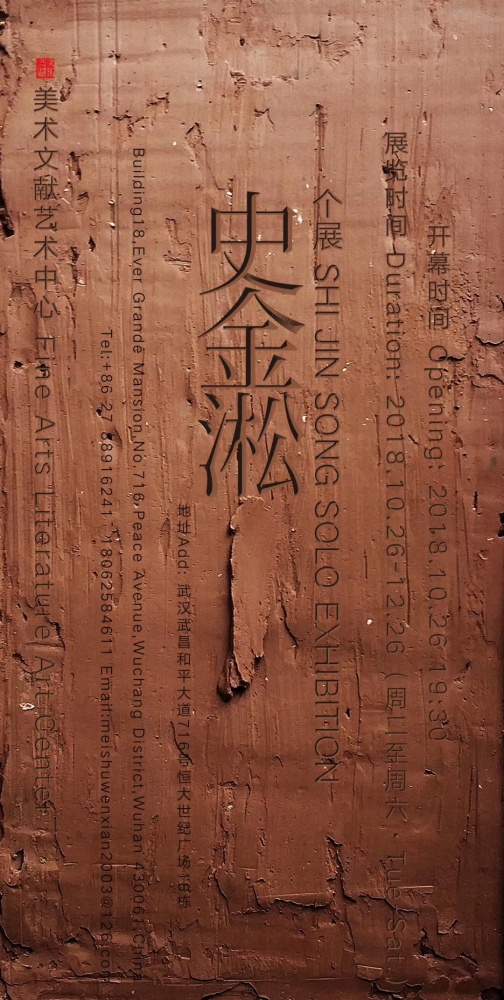 开幕时间 Opening: 2018.10.26 19:30
展览时间 Duration: 2018.10.26-12.26 (周二至周六 · Tue-Sat.)
个展 SHI JIN SONG SOLO EXHIBITION
史金淞
地址Add: 武汉武昌和平大道716号恒大世纪广场18栋
Building18,Ever Grande Mansion,No.716,Peace Avenue,Wuchang District,Wuhan 430061,China
Tel:+86 27 88916241 18062584611 Email:meishuwenxian2003@126.com
美术文献艺术中心 Fine Arts Literature Art Center